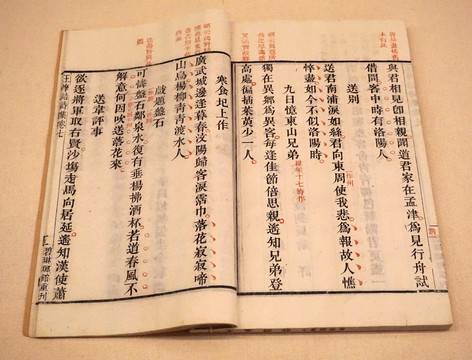 與君相見即相親聞道君家在孟津爲見行舟試
借問客中時有洛陽人
送別
送君南浦淚如絲君向東周使我悲爲報故人憔
悴盡如今不似洛陽時
九日憶東山兄弟 時年十七時作
獨在異鄉爲異客每逢佳節倍思親遙知兄弟登
高處徧插茱萸少一人
寒食汜上作
廣武城邊逢暮春汶陽歸客淚霑巾落花寂寂啼
山鳥楊柳青青渡水人
戲題盤石
可憐盤石鄰泉水復有垂楊拂酒杯若道春風不
解意何因吹送落花來
送韋評事
欲逐將軍取右賢沙場走馬向居延遙知漢使蕭
王摩詰詩集卷七 碧琳瑯館重刊